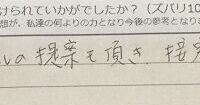 けられていかがでしたか？（ズバリ10
想が、私達の何よりの力となり今後の参考となりま
の提案も頂き、接